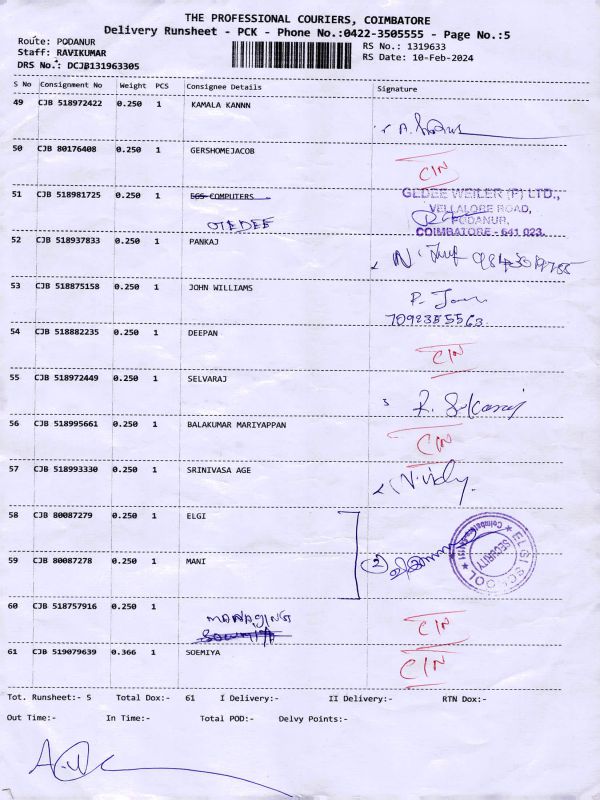 THE PROFESSIONAL COURIERS, COIMBATORE
Delivery Runsheet - PCK - Phone No.:0422-3505555 - Page No.:5
Route: PODANUR
RS No.: 1319633
Staff: RAVIKUMAR
RS Date: 10-Feb-2024
DRS No.: DCJB131963305
S No Consignment No Weight PCS Consignee Details Signature
49 CJB 518972422 0.250 1 KAMALA KANNN
50 CJB 80176408 0.250 1 GERSHOMEJACOB CIN
51 CJB 518981725 0.250 1 EGS COMPUTERS
OTEDEE
GEDEE WEILER (P) LTD.,
VELLALORE ROAD,
PODANUR,
COIMBATORE - 641 023.
52 CJB 518937833 0.250 1 PANKAJ
53 CJB 518875158 0.250 1 JOHN WILLIAMS
7092355563
54 CJB 518882235 0.250 1 DEEPAN CIN
55 CJB 518972449 0.250 1 SELVARAJ
56 CJB 518995661 0.250 1 BALAKUMAR MARIYAPPAN CIN
57 CJB 518993330 0.250 1 SRINIVASA AGE
58 CJB 80087279 0.250 1 ELGI
59 CJB 80087278 0.250 1 MANI
2
ELGI SCHOOL
SECURITY
60 CJB 518757916 0.250 1
MANAGING
CIN
61 CJB 519079639 0.366 1 SOEMIYA CIN
Tot. Runsheet:- 5 Total Dox:- 61 I Delivery:- II Delivery:- RTN Dox:-
Out Time:- In Time:- Total POD:- Delvy Points:-